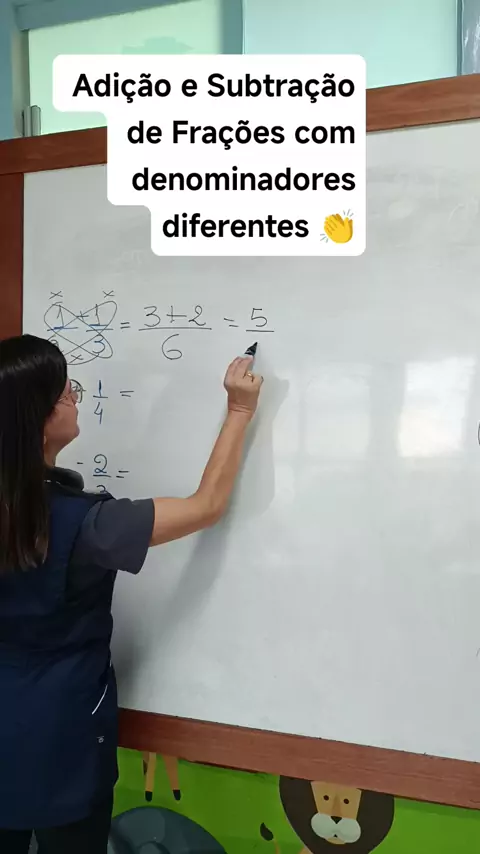 Adição e Subtração
de Frações com
denominadores
diferentes 👏
x x
1 + 1 = 3+2 = 5
3 6
x
+ 1 =
4
- 2 =